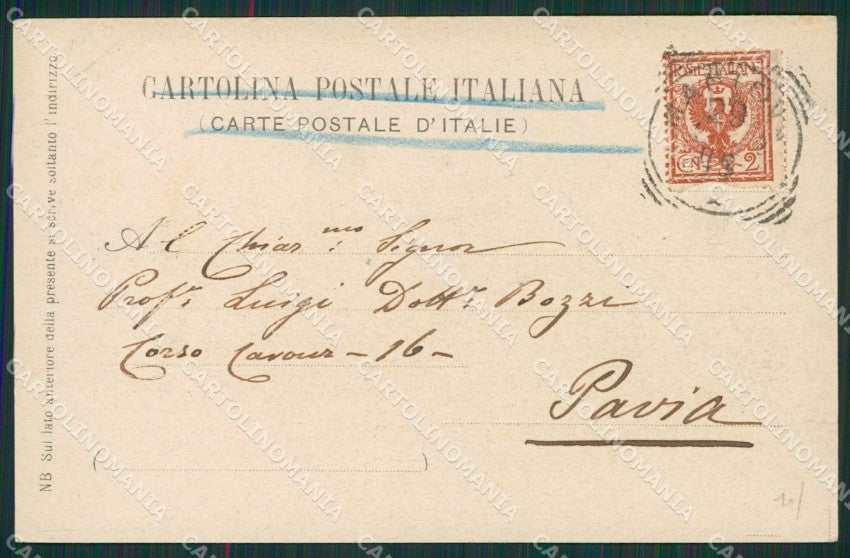 CARTOLINA POSTALE ITALIANA
(CARTE POSTALE D'ITALIE)
Al Chiar.mo Signor
Prof.r Luigi Dott.r Bozzi
Corso Cavour - 16 -
Pavia
NB Sul lato anteriore della presente si scrive soltanto l'indirizzo
2
CARTOLINOMANIA